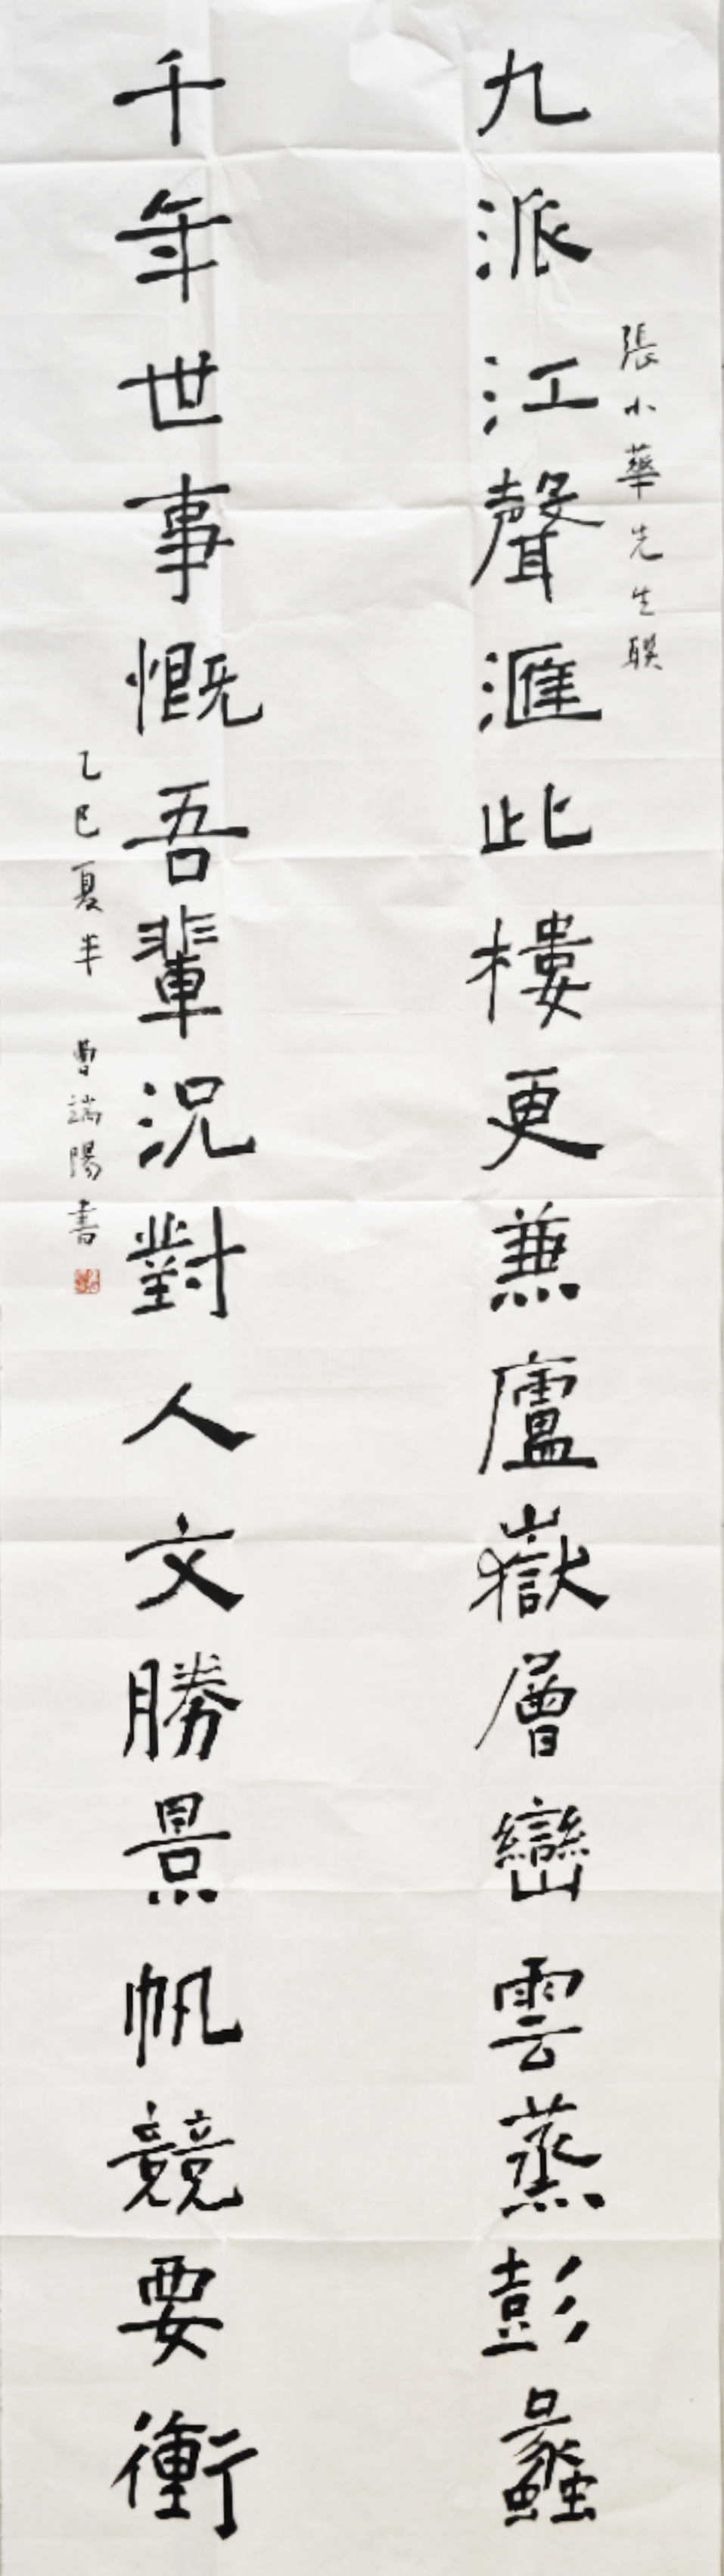 張小華先生联
九派江聲滙此樓更兼廬嶽層巒雲蒸彭蠡
千年世事慨吾輩況對人文勝景帆競要衝
乙巳夏半 曹端陽書